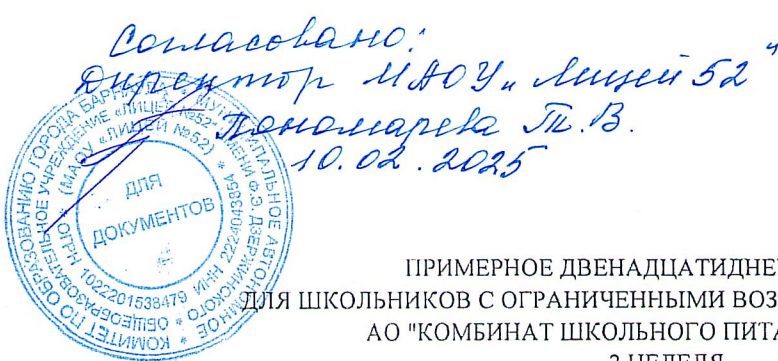 Согласовано:
Директор МАОУ „Лицей 52"
Пономарева Т.В.
10.02.2025
КОМИТЕТ ПО ОБРАЗОВАНИЮ ГОРОДА БАРНАУЛА * МУНИЦИПАЛЬНОЕ АВТОНОМНОЕ
ОБЩЕОБРАЗОВАТЕЛЬНОЕ УЧРЕЖДЕНИЕ «ЛИЦЕЙ №52» ИМЕНИ Ф.Э. ДЗЕРЖИНСКОГО
(МАОУ «ЛИЦЕЙ №52») * ИНН 2224043854
ОГРН 1022201538479
ДЛЯ
ДОКУМЕНТОВ
ПРИМЕРНОЕ ДВЕНАДЦАТИДНЕ
ДЛЯ ШКОЛЬНИКОВ С ОГРАНИЧЕННЫМИ ВОЗ
АО "КОМБИНАТ ШКОЛЬНОГО ПИТА
НЕДЕЛЯ